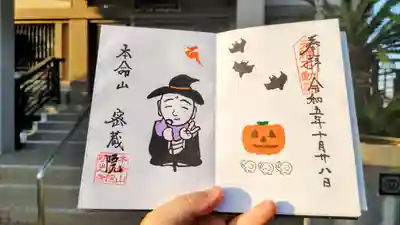 奉拝 令和五年十月廿八日
本命山
密蔵院